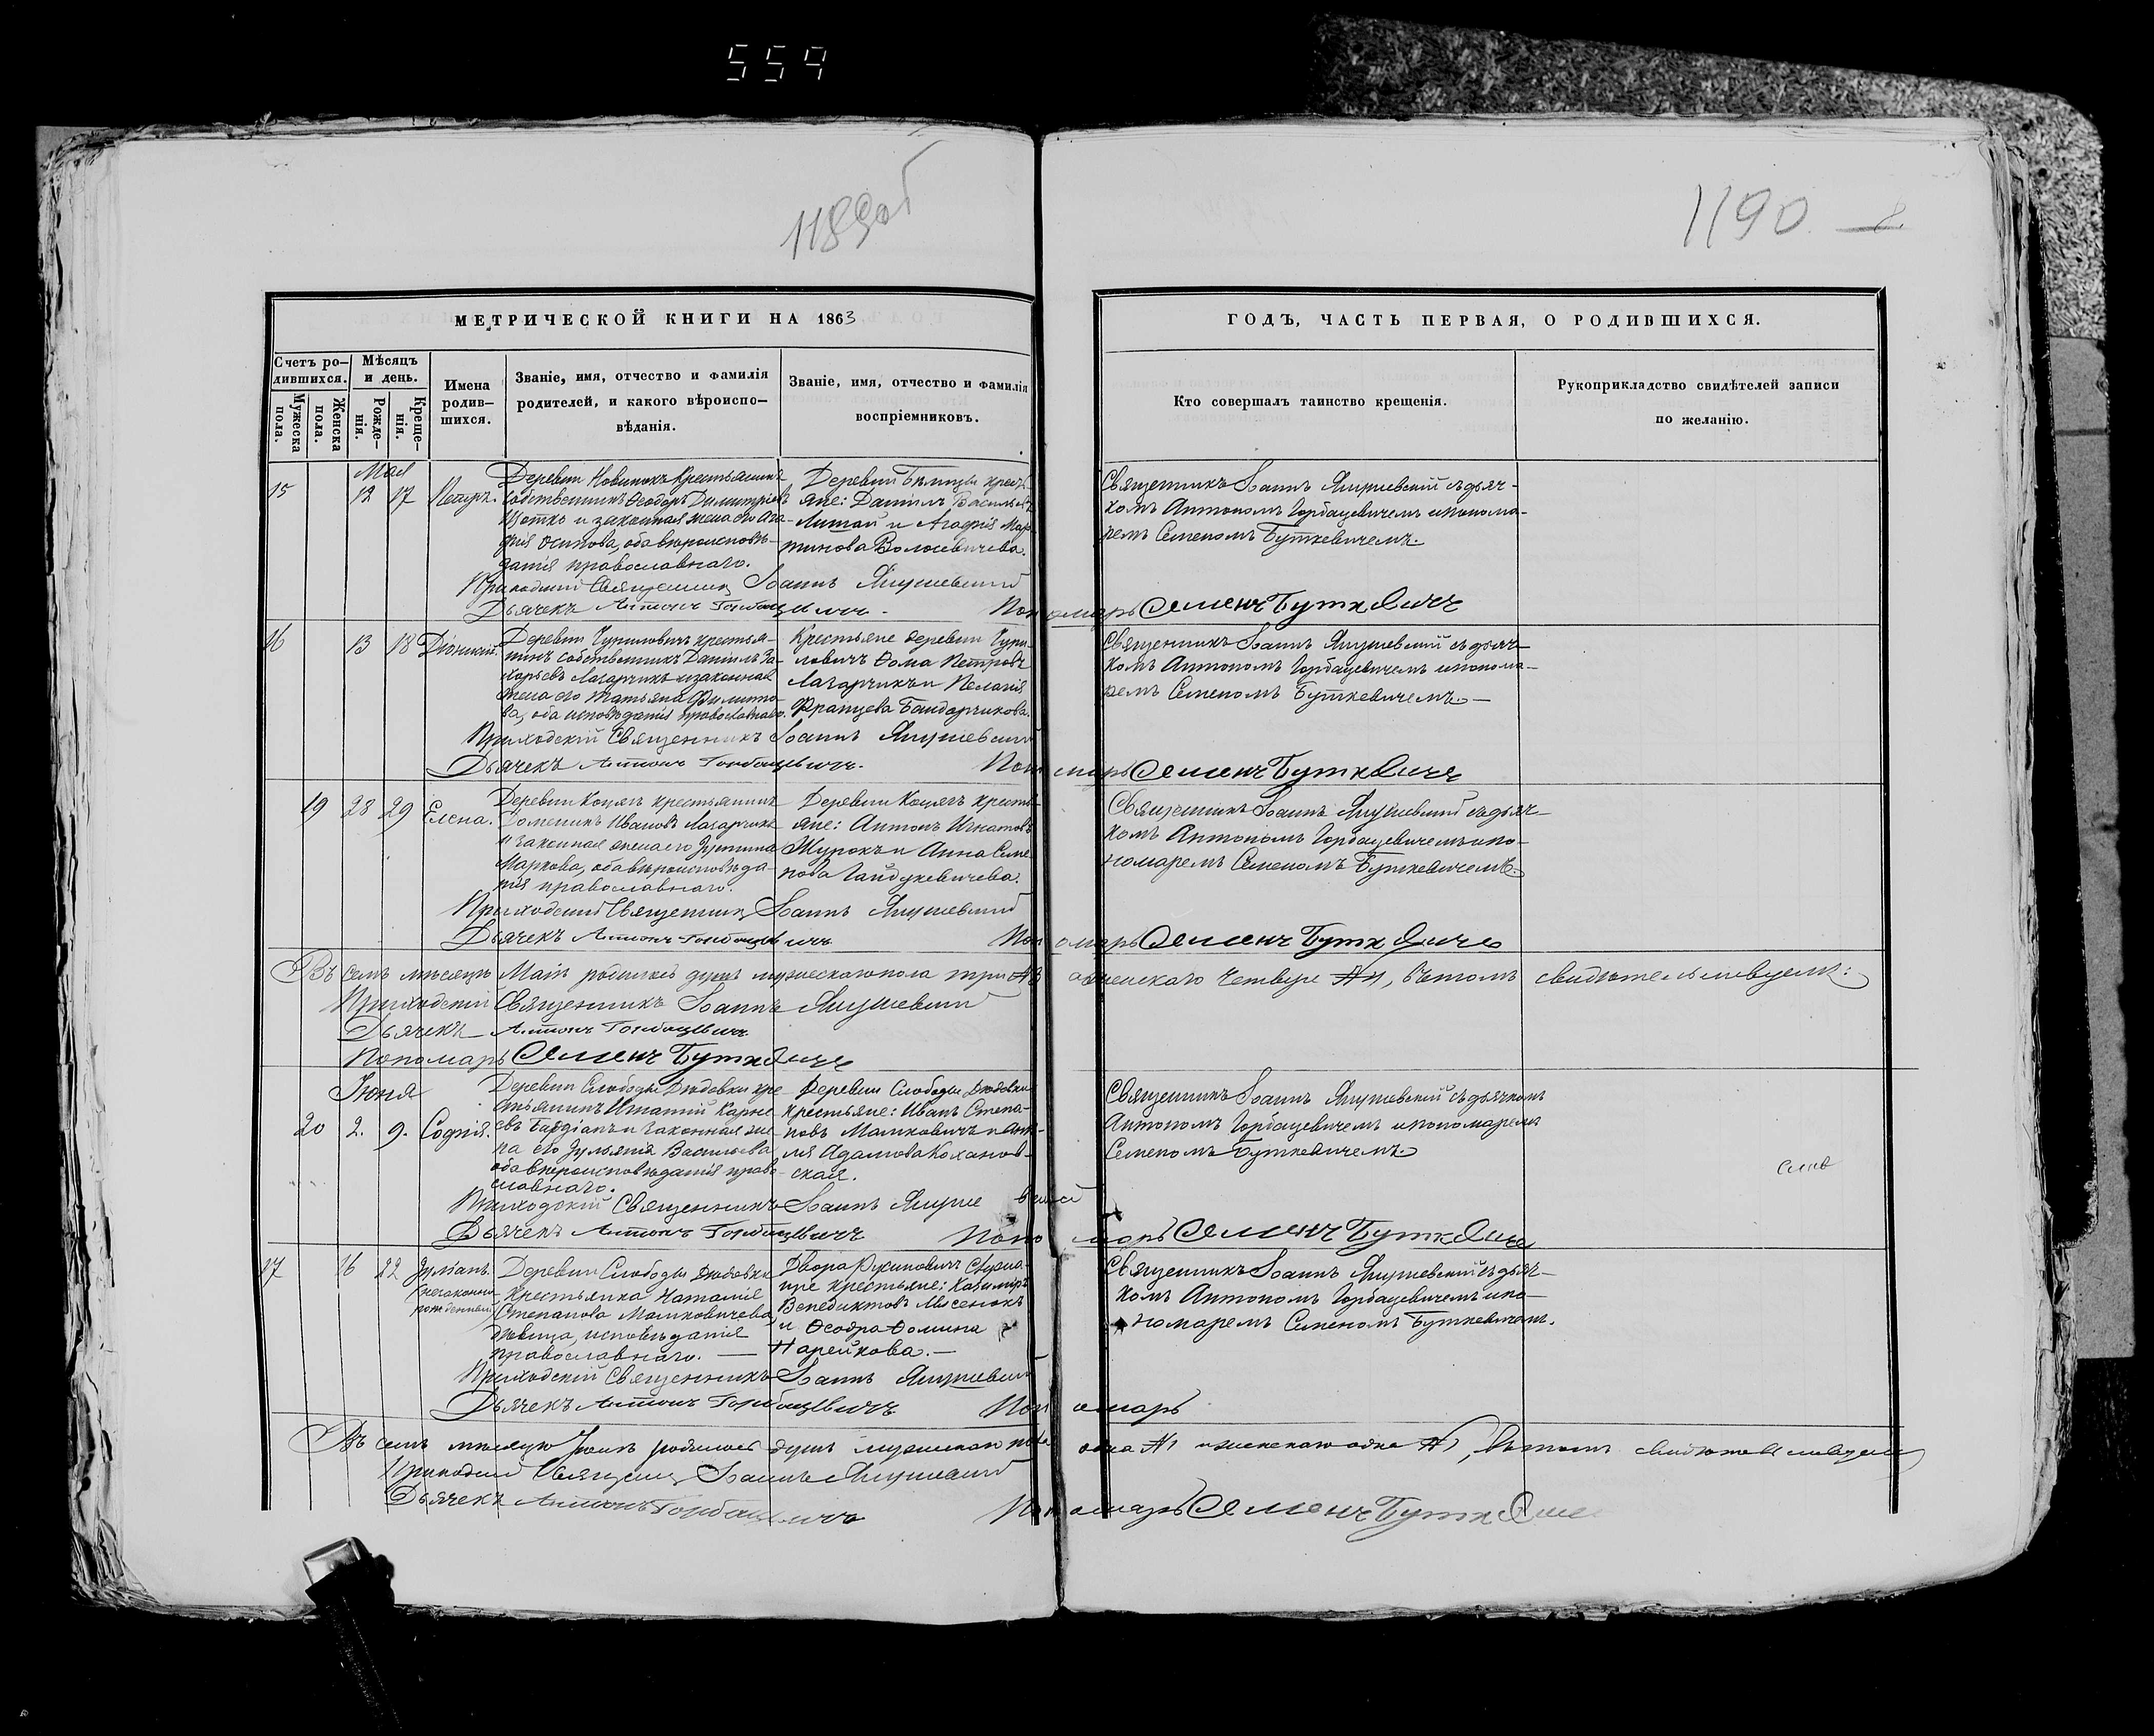 559
1189об
1190.
МЕТРИЧЕСКОЙ КНИГИ НА 1863
ГОДЪ, ЧАСТЬ ПЕРВАЯ, О РОДИВШИХСЯ.
Счетъ ро-
дившихся.
Мужеска
пола.
Женска
пола.
Мѣсяцъ
и день.
Рожде-
нія.
Креще-
нія.
Имена
родив-
шихся.
Званіе, имя, отчество и фамилія
родителей, и какого вѣроиспо-
вѣданія.
Званіе, имя, отчество и фамилія
воспріемниковъ.
Кто совершалъ таинство крещенія.
Рукоприкладство свидѣтелей записи
по желанію.
Мая
15 12 17 Петръ.
Деревни Новинокъ крестьянинъ
собственникъ Ѳеодоръ Димитріевъ
и законная жена его Ага-
фія Осипова, оба вѣроисповѣ-
данія православнаго.
Деревни крестья-
яне: Даніилъ Васильевъ
и Агафія Мар-
тинова Волосевичева.
Священникъ Іоаннъ съ дьяч-
комъ Антономъ Горбацевичемъ и понома-
ремъ Семеномъ Буткевичемъ.
Приходскій Священникъ Іоаннъ
Дьячекъ Антонъ Горбацевичъ.
Пономарь Семенъ Буткевичъ
16 13 18 Діонисій.
Деревни Чуриловичъ крестья-
нинъ собственникъ Даніилъ За-
харьевъ Лагарчикъ и законная
жена его Татьяна Филипо-
ва, оба исповѣданія православнаго.
Крестьяне деревни Чури-
ловичъ Ѳома Петровъ
Лагарчикъ и Пелагія
Францева Бандарчикова.
Священникъ Іоаннъ съ дьяч-
комъ Антономъ Горбацевичемъ и понома-
ремъ Семеномъ Буткевичемъ.
Приходскій Священникъ Іоаннъ
Дьячекъ Антонъ Горбацевичъ.
Пономарь Семенъ Буткевичъ
19 28 29 Елена.
Деревни крестьянинъ
Доменикъ Ивановъ Лагарчикъ
и законная жена его Іустина
Маркова, оба вѣроисповѣда-
нія православнаго.
Деревни крестья-
яне: Антонъ Игнатовъ
Журокъ и Анна Семе-
нова Гайдукевичева.
Священникъ Іоаннъ съ дьяч-
комъ Антономъ Горбацевичемъ и по-
номаремъ Семеномъ Буткевичемъ.
Приходскій Священникъ Іоаннъ
Дьячекъ Антонъ Горбацевичъ
Пономарь Семенъ Буткевичъ
Въ семъ мѣсяцѣ Маіи родилось душъ мужескаго пола три №3 а женскаго четыре №4, въ томъ свидѣтельствуемъ:
Приходскій Священникъ Іоаннъ
Дьячекъ Антонъ Горбацевичъ
Пономарь Семенъ Буткевичъ
Іюня
20 2. 9. Софія.
Деревни Слободы кре-
стьянинъ Игнатій Карне-
евъ и законная же-
на его Іульянія Васильева
оба вѣроисповѣданія право-
славнаго.
Деревни Слободы
крестьяне: Иванъ Степа-
новъ Машковичъ и
Адамова Коханов-
ская.
Священникъ Іоаннъ съ дьячкомъ
Антономъ Горбацевичемъ и пономаремъ
Семеномъ Буткевичемъ.
Приходскій Священникъ Іоаннъ
Дьячекъ Антонъ Горбацевичъ
Пономарь Семенъ Буткевичъ
17 16 22 Іуліанъ.
незаконно-
рожденный
Деревни Слободы
крестьянка Наталія
Степанова Машковичева
дѣвица, исповѣданія
православнаго.
Двора
крестьяне: Казиміръ
Венедиктовъ Мисенокъ
и Ѳеодора Ѳомина
Нарейкова.
Священникъ Іоаннъ съ дьяч-
комъ Антономъ Горбацевичемъ и по-
номаремъ Семеномъ Буткевичемъ.
Приходскій Священникъ Іоаннъ
Дьячекъ Антонъ Горбацевичъ
Пономарь
Въ семъ мѣсяцѣ Іюнѣ родилось душъ мужеска пола одна №1 и женскаго одна №1, въ томъ свидѣтельствуемъ
Приходскій Священникъ Іоаннъ
Дьячекъ Антонъ Горбацевичъ
Пономарь Семенъ Буткевичъ